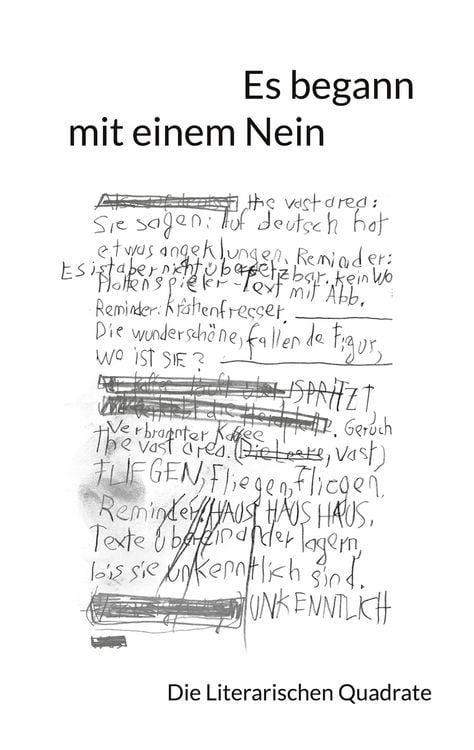 Es begann
mit einem Nein
the vast area:
Sie sagen: Auf deutsch hat
etwas angeklungen. Reminder:
Es ist aber nicht übersetzbar. kein Wo
Plattenspieler-Text mit Abb.
Reminder: Krähenfresser.
Die wunderschöne, fallende Figur,
WO IST SIE?
Der Kaffee läuft über, SPRITZT,
die Herdplatte. Geruch
Verbrannter Kaffee
the vast area. (Die Leere, vast)
FLIEGEN, Fliegen, Fliegen.
Reminder: HAUS HAUS HAUS.
Texte übereinander lagern,
bis sie unkenntlich sind.
UNKENNTLICH
Die Literarischen Quadrate